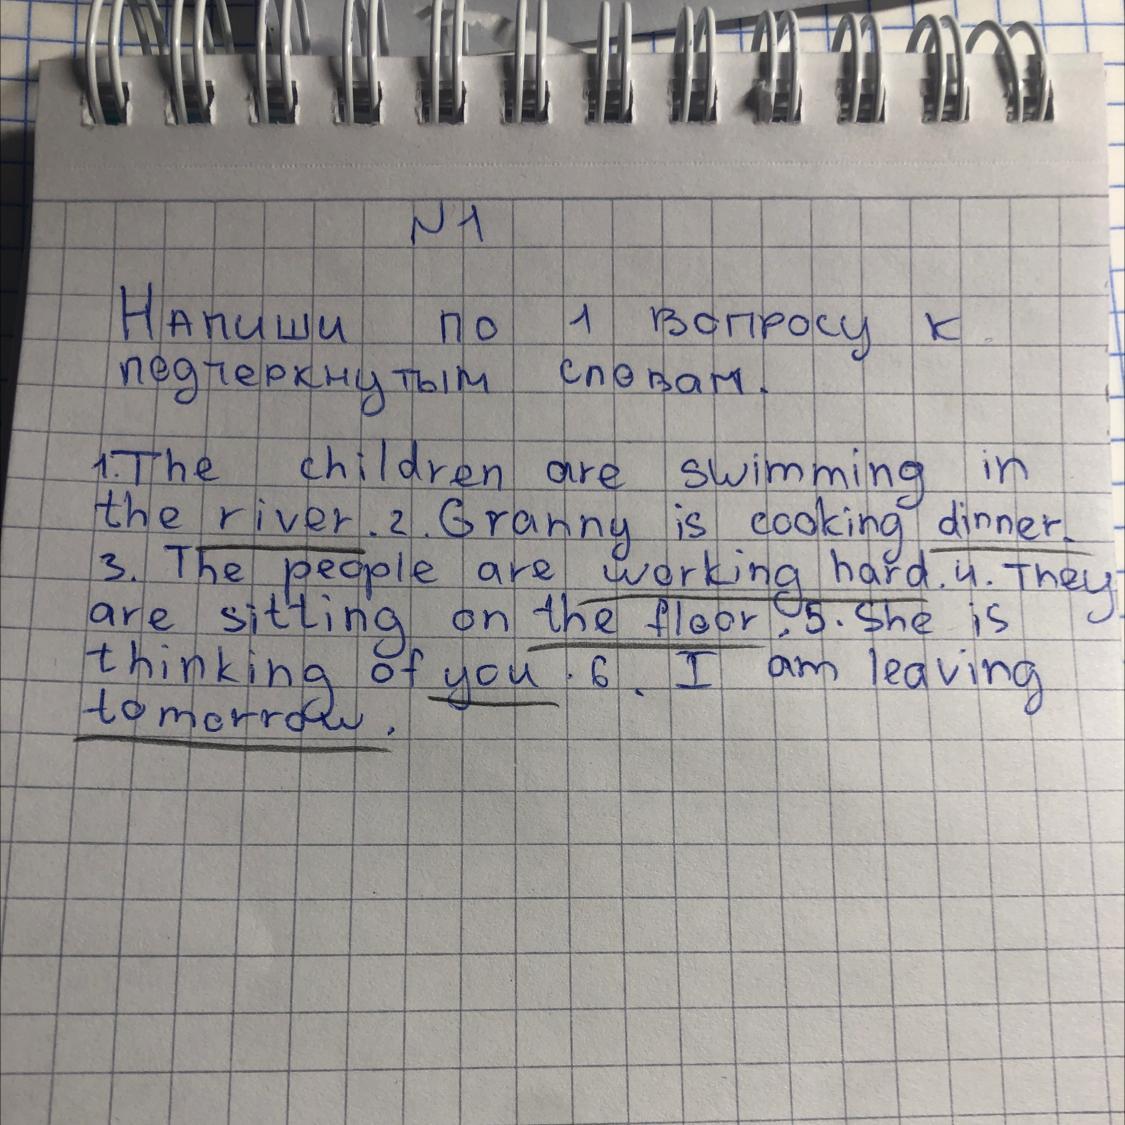 N1
Напиши по 1 вопросу к
подчеркнутым словам.
1. The children are swimming in
the river. 2. Granny is cooking dinner.
3. The people are working hard. 4. They
are sitting on the floor. 5. She is
thinking of you. 6. I am leaving
tomorrow.